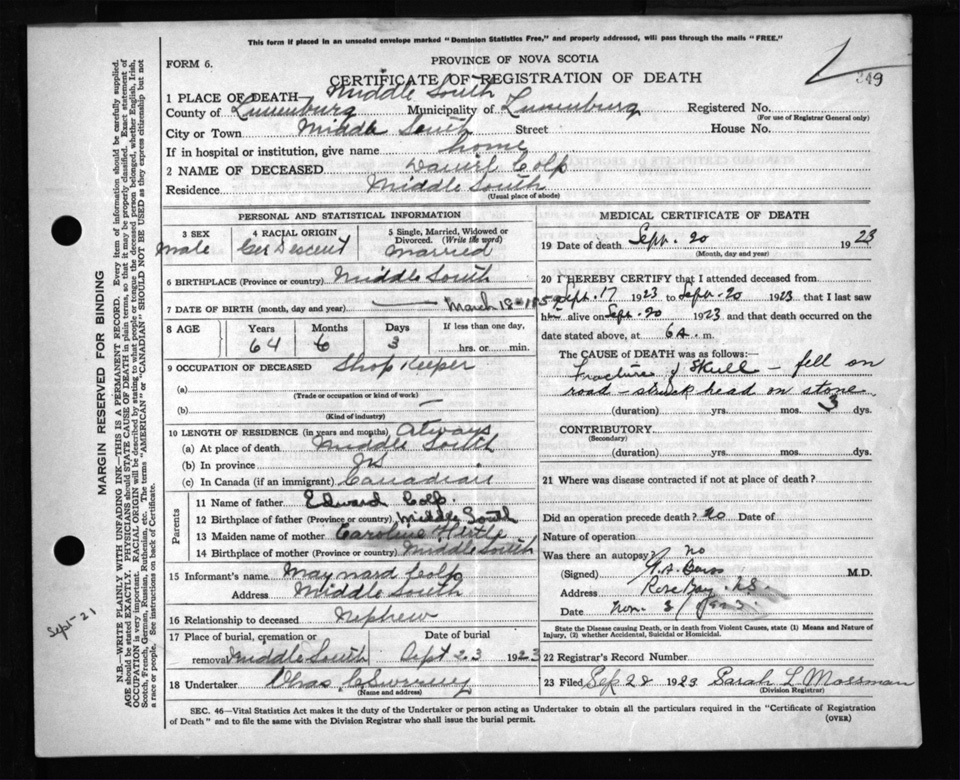 This form if placed in an unsealed envelope marked "Dominion Statistics Free," and properly addressed, will pass through the mails "FREE."
FORM 6.
PROVINCE OF NOVA SCOTIA
CERTIFICATE OF REGISTRATION OF DEATH
249
1 PLACE OF DEATH— Middle South
County of Lunenburg Municipality of Lunenburg Registered No.
(For use of Registrar General only)
City or Town Middle South Street House No.
If in hospital or institution, give name home
2 NAME OF DECEASED Daniel Colp
Residence Middle South
(Usual place of abode)
PERSONAL AND STATISTICAL INFORMATION
3 SEX 4 RACIAL ORIGIN 5 Single, Married, Widowed or Divorced. (Write the word)
Male Ger Descent Married
6 BIRTHPLACE (Province or country) Middle South
7 DATE OF BIRTH (month, day and year) — March 18 - 185
8 AGE Years Months Days If less than one day,
64 6 3 hrs. or min.
9 OCCUPATION OF DECEASED Shop Keeper
(a)
(Trade or occupation or kind of work)
(b) —
(Kind of industry)
10 LENGTH OF RESIDENCE (in years and months) Always
(a) At place of death Middle South
(b) In province
(c) In Canada (if an immigrant) Canadian
Parents
11 Name of father Edward Colp.
12 Birthplace of father (Province or country) Middle South
13 Maiden name of mother Caroline Hirtle
14 Birthplace of mother (Province or country) Middle South
15 Informant's name Maynard Colp
Address Middle South
16 Relationship to deceased Nephew
17 Place of burial, cremation or Date of burial
removal Middle South Sept 23 1923
18 Undertaker Chas
(Name and address)
MEDICAL CERTIFICATE OF DEATH
19 Date of death Sept. 20 1923
(Month, day and year)
20 I HEREBY CERTIFY that I attended deceased from
Sept. 17 1923 to Sept. 20 1923 that I last saw
him alive on Sept. 20 1923 and that death occurred on the
date stated above, at 6 A. m.
The CAUSE OF DEATH was as follows:
Fracture of Skull — fell on
road — struck head on stone
(duration) yrs. mos. 3 dys.
CONTRIBUTORY
(Secondary)
(duration) yrs. mos. dys.
21 Where was disease contracted if not at place of death?
Did an operation precede death? No Date of
Nature of operation
Was there an autopsy? no
(Signed) M.D.
Address Rose Bay. N.S
Date Nov. 8 / 1923.
State the Disease causing Death, or in death from Violent Causes, state (1) Means and Nature of
Injury, (2) whether Accidental, Suicidal or Homicidal.
22 Registrar's Record Number
23 Filed Sep 28 1923 Sarah L Mossman
(Division Registrar)
SEC. 46—Vital Statistics Act makes it the duty of the Undertaker or person acting as Undertaker to obtain all the particulars required in the "Certificate of Registration
of Death" and to file the same with the Division Registrar who shall issue the burial permit. (OVER)
MARGIN RESERVED FOR BINDING
N.B.—WRITE PLAINLY WITH UNFADING INK—THIS IS A PERMANENT RECORD. Every item of information should be carefully supplied.
AGE should be stated EXACTLY. PHYSICIANS should STATE CAUSE OF DEATH in plain terms, so that it may be properly classified. Exact statement of
OCCUPATION is very important. RACIAL ORIGIN will be described by stating to what people or tongue the deceased person belonged, whether English, Irish,
Scotch, French, German, Russian, Ruthenian, etc. The terms "AMERICAN" or "CANADIAN" SHOULD NOT BE USED as they express citizenship but not
a race or people. See instructions on back of Certificate.
Sept-21